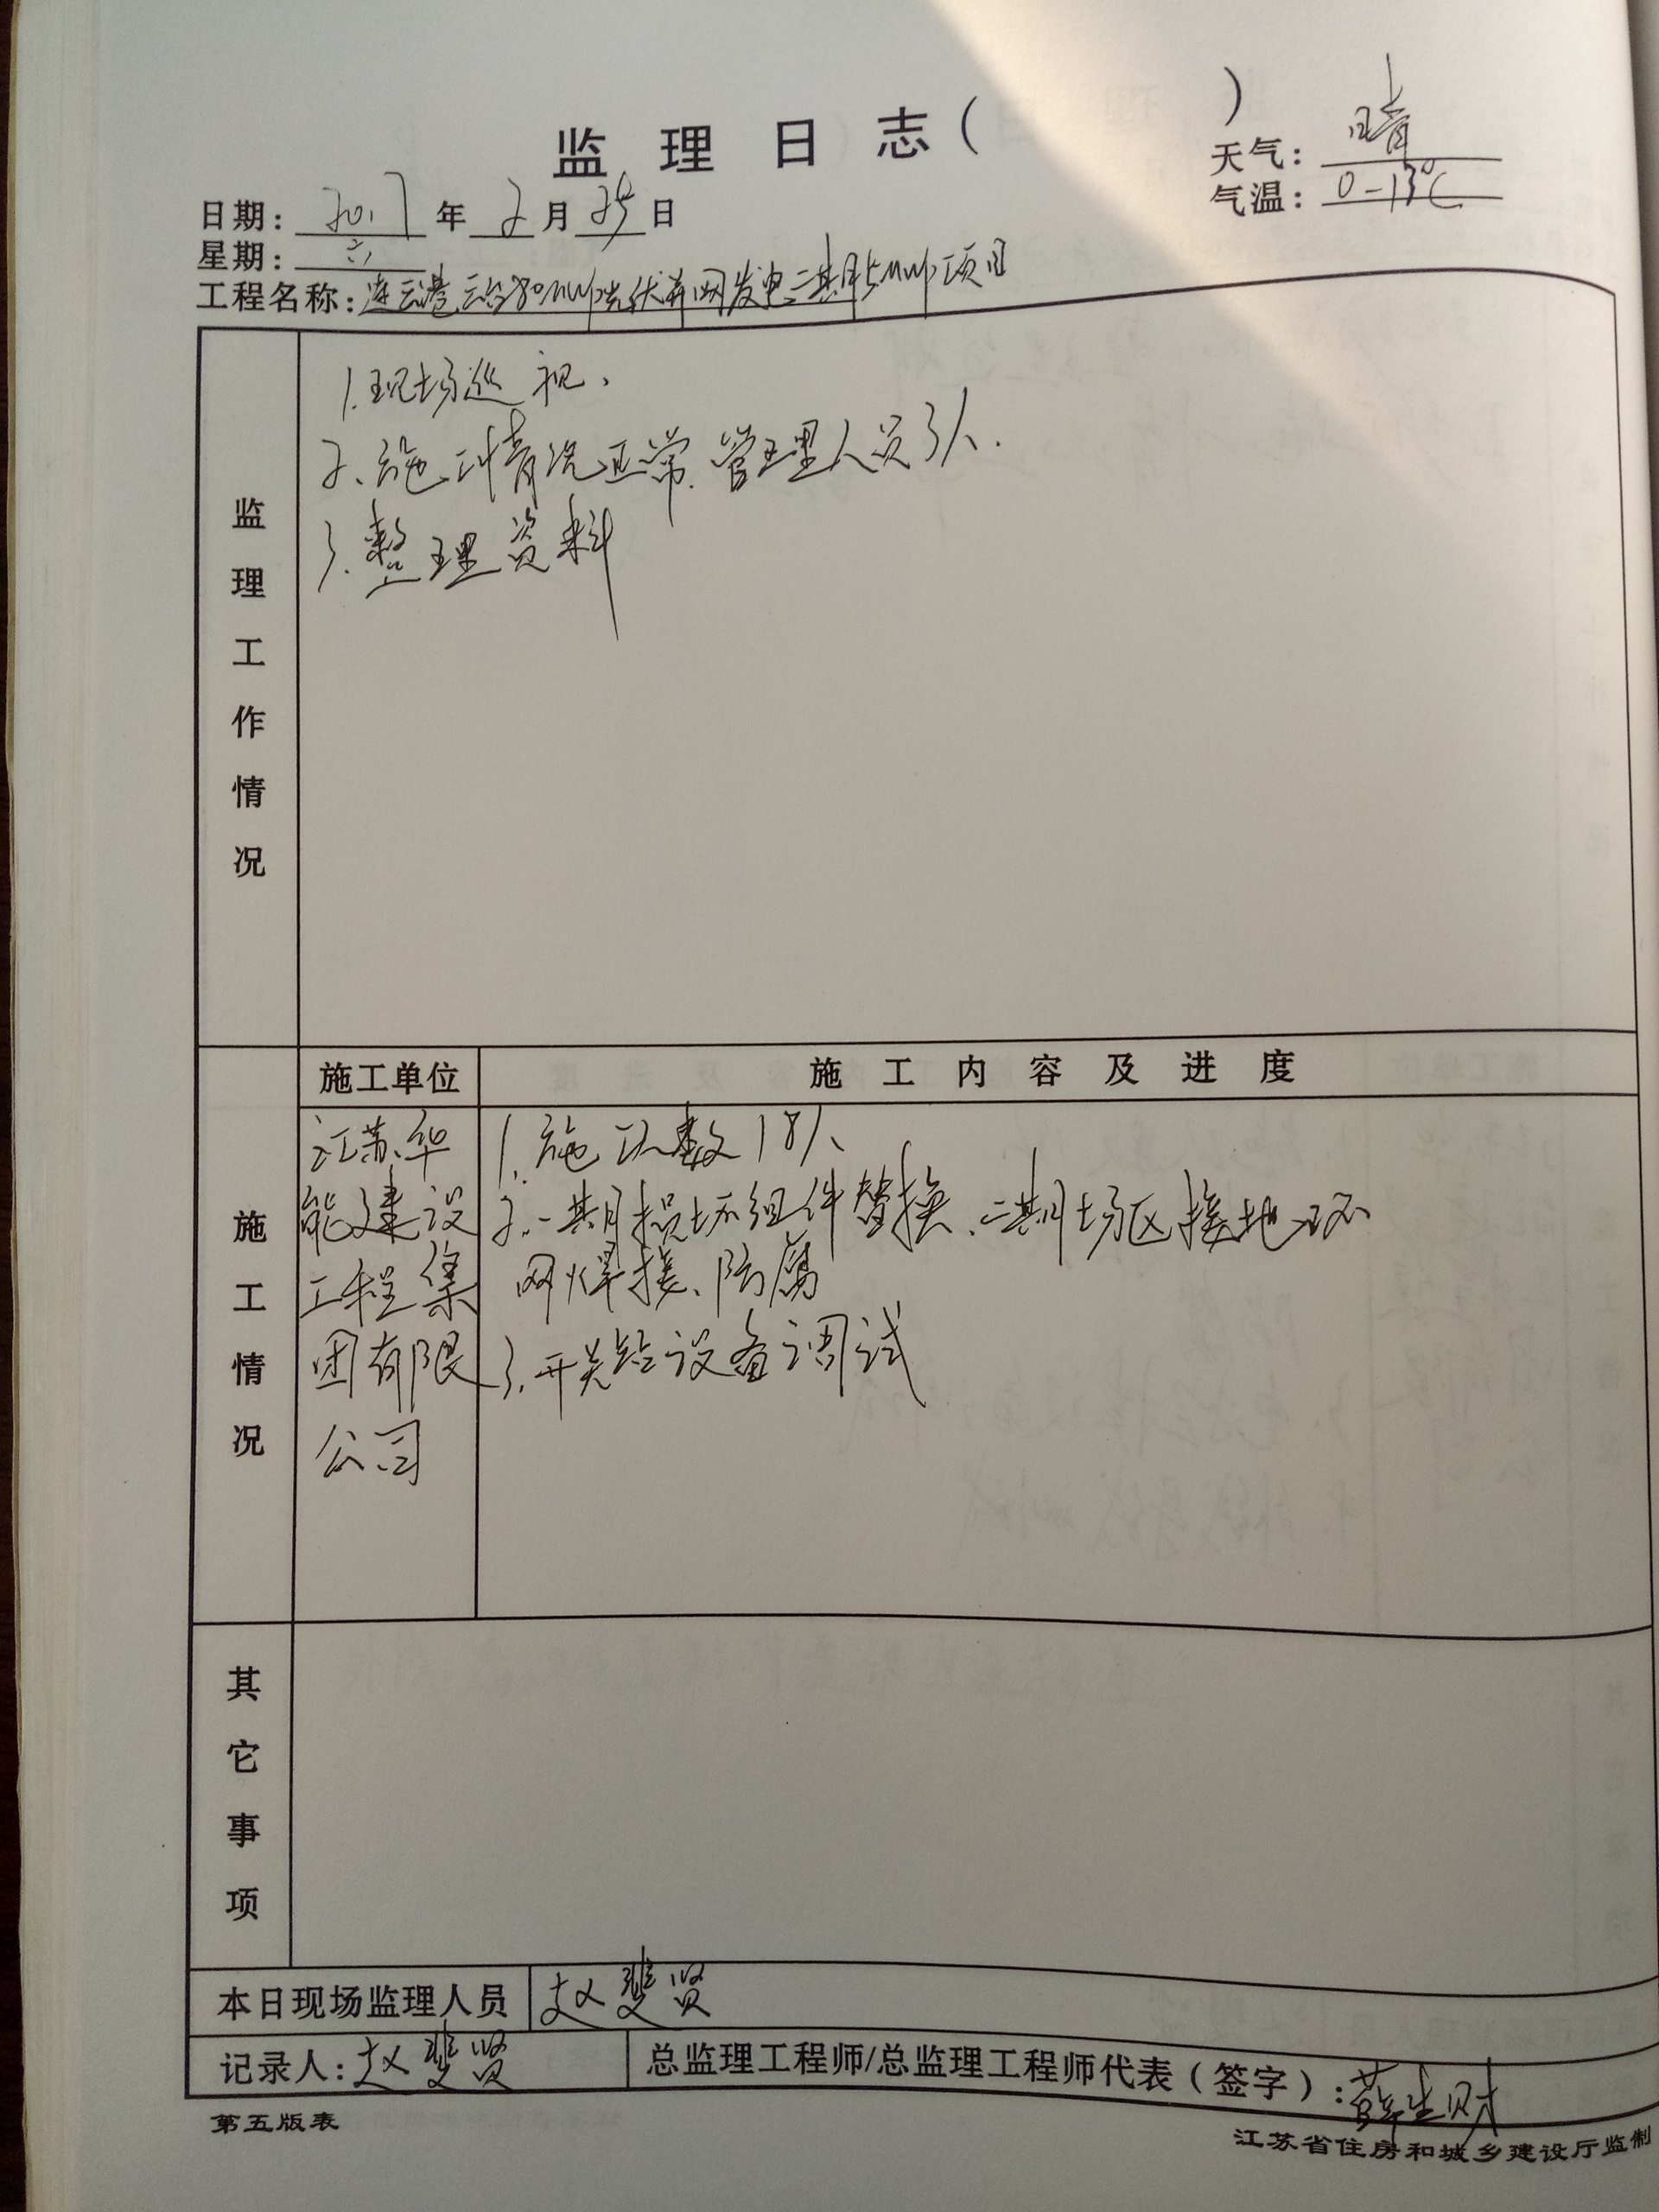 监理日志（ ）
天气：晴
气温：0-13℃
日期：2017年2月25日
星期：六
工程名称：连云港云台80MWp光伏并网发电二期5MWp项目
监理工作情况
1.现场巡视.
2、施工情况正常.管理人员3人.
3.整理资料
施工单位
施工内容及进度
施工情况
江苏华
能建设
工程集
团有限
公司
1.施工人数18人、
2.一期损坏组件替换、二期场区接地环
网焊接、防腐
3.开关站设备调试
其它事项
本日现场监理人员 赵斐贤
记录人：赵斐贤
总监理工程师/总监理工程师代表（签字）：薛生财
第五版表
江苏省住房和城乡建设厅监制